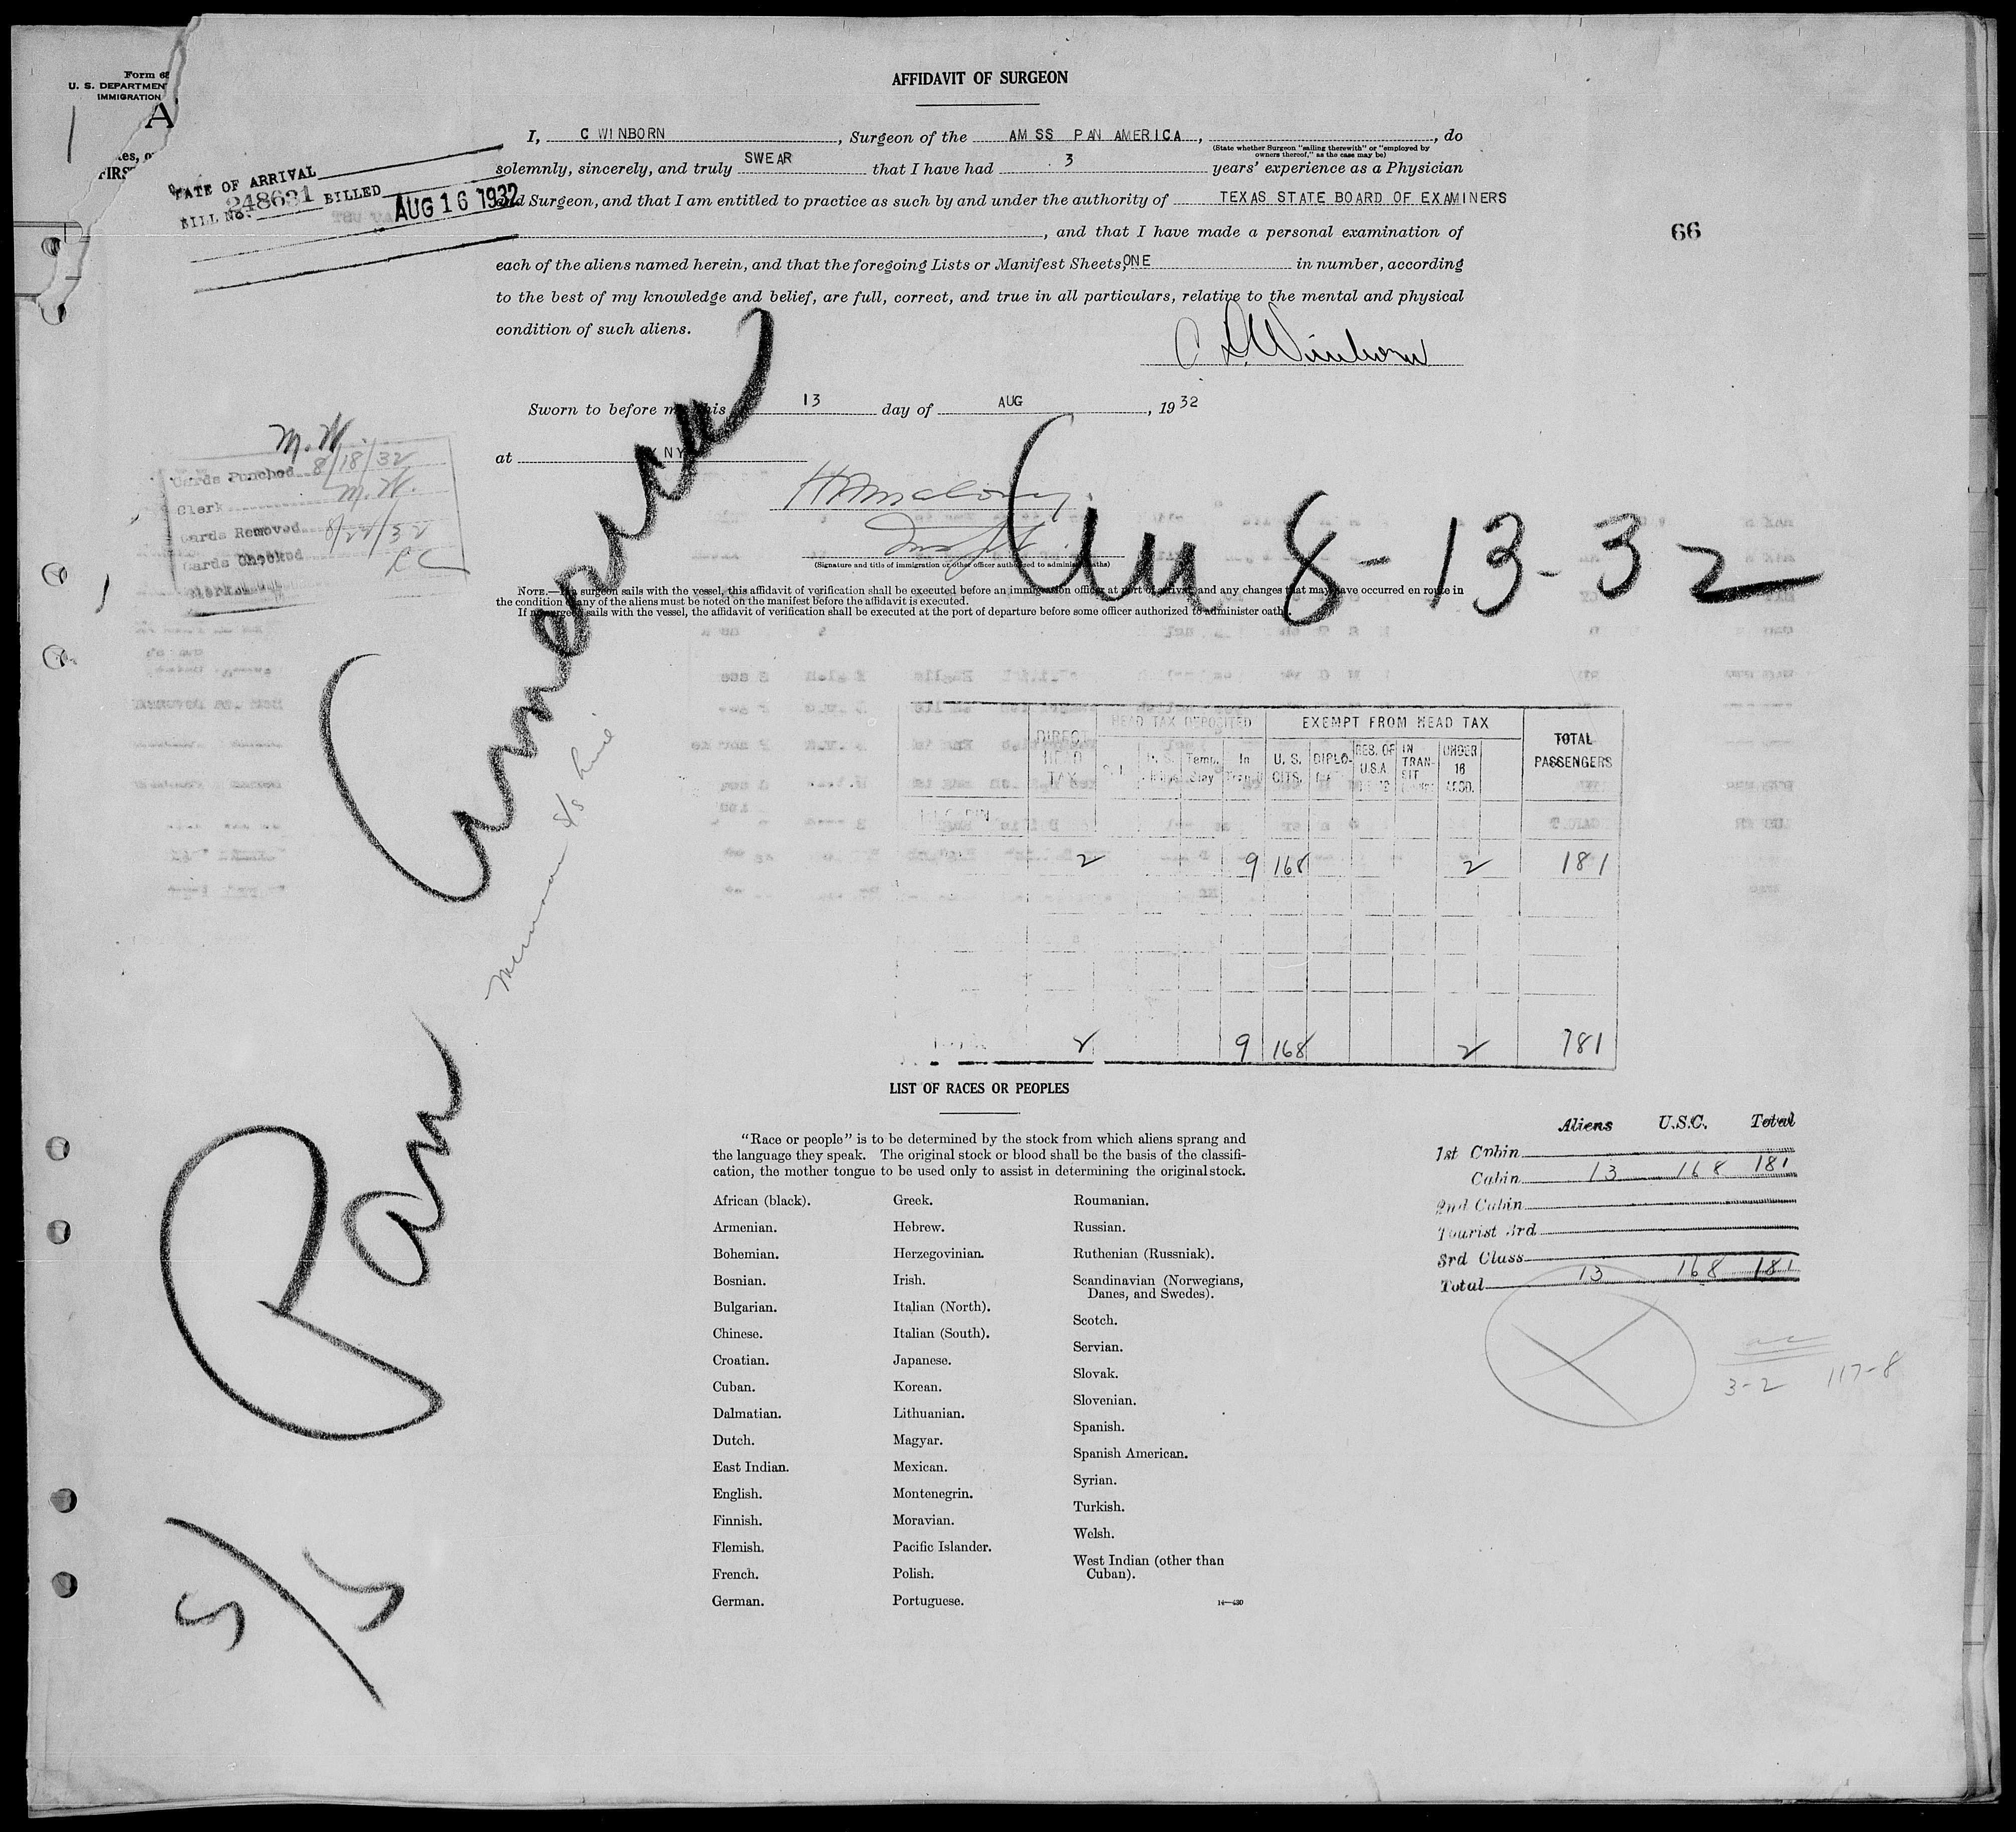 Form 68
U. S. DEPARTMEN
IMMIGRATION
A
FIRST
AFFIDAVIT OF SURGEON
I, C WINBORN, Surgeon of the AM SS PAN AMERICA, , do
(State whether Surgeon "sailing therewith" or "employed by owners thereof," as the case may be)
solemnly, sincerely, and truly SWEAR that I have had 3 years' experience as a Physician
and Surgeon, and that I am entitled to practice as such by and under the authority of TEXAS STATE BOARD OF EXAMINERS
, and that I have made a personal examination of
each of the aliens named herein, and that the foregoing Lists or Manifest Sheets, ONE in number, according
to the best of my knowledge and belief, are full, correct, and true in all particulars, relative to the mental and physical
condition of such aliens.
C D. Winborn
Sworn to before me this 13 day of AUG, 1932
at NY
(Signature and title of immigration or other officer authorized to administer oaths)
NOTE.—If a surgeon sails with the vessel, this affidavit of verification shall be executed before an immigration officer at port of arrival, and any changes that may have occurred en route in
the condition of any of the aliens must be noted on the manifest before the affidavit is executed.
If no surgeon sails with the vessel, the affidavit of verification shall be executed at the port of departure before some officer authorized to administer oaths.
DATE OF ARRIVAL
BILL No. 248631 BILLED AUG 16 1932
66
M. W.
Cards Punched 8/18/32
Clerk M. W.
Cards Removed 8/22/32
Cards Checked RC
S/S Pan America
Munson S/S Line
8-13-32
DIRECT HEAD TAX
HEAD TAX DEPOSITED
EXEMPT FROM HEAD TAX
TOTAL PASSENGERS
Temp. Stay
In Transit
U. S. CITS.
DIPLO-
RES. OF U.S.A.
IN TRAN-SIT
UNDER 16 ACCO.
2 9 168 2 181
2 9 168 2 181
LIST OF RACES OR PEOPLES
"Race or people" is to be determined by the stock from which aliens sprang and
the language they speak. The original stock or blood shall be the basis of the classifi-
cation, the mother tongue to be used only to assist in determining the original stock.
African (black).
Armenian.
Bohemian.
Bosnian.
Bulgarian.
Chinese.
Croatian.
Cuban.
Dalmatian.
Dutch.
East Indian.
English.
Finnish.
Flemish.
French.
German.
Greek.
Hebrew.
Herzegovinian.
Irish.
Italian (North).
Italian (South).
Japanese.
Korean.
Lithuanian.
Magyar.
Mexican.
Montenegrin.
Moravian.
Pacific Islander.
Polish.
Portuguese.
Roumanian.
Russian.
Ruthenian (Russniak).
Scandinavian (Norwegians,
Danes, and Swedes).
Scotch.
Servian.
Slovak.
Slovenian.
Spanish.
Spanish American.
Syrian.
Turkish.
Welsh.
West Indian (other than
Cuban).
14—430
Aliens U.S.C. Total
1st Cabin
Cabin 13 168 181
2nd Cabin
Tourist 3rd
3rd Class
Total 13 168 181
3-2 117-8